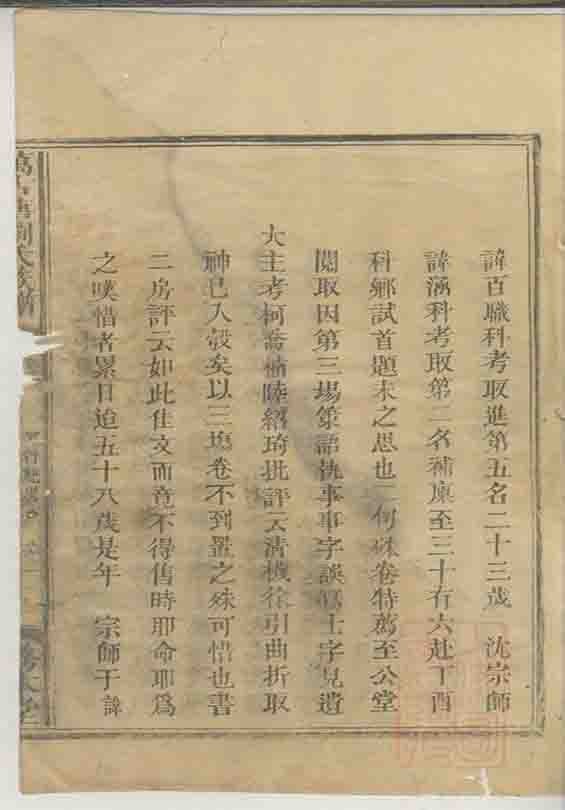 諱百職科考取進第五名二十三歲 沈宗師
諱涵科考取第二名補廩至三十有六赴丁酉
科鄉試首題未之思也二句硃卷特薦至公堂
閱取因第三場策語執事事字誤寫士字見遺
大主考柯喬陸紹琦批評云清機徐引曲折取
神已入彀矣以三塲卷不到置之殊可惜也書
二房評云如此佳文而竟不得售時耶命耶為
之嘆惜者累日迨五十八歲是年 宗師于諱
氏族譜